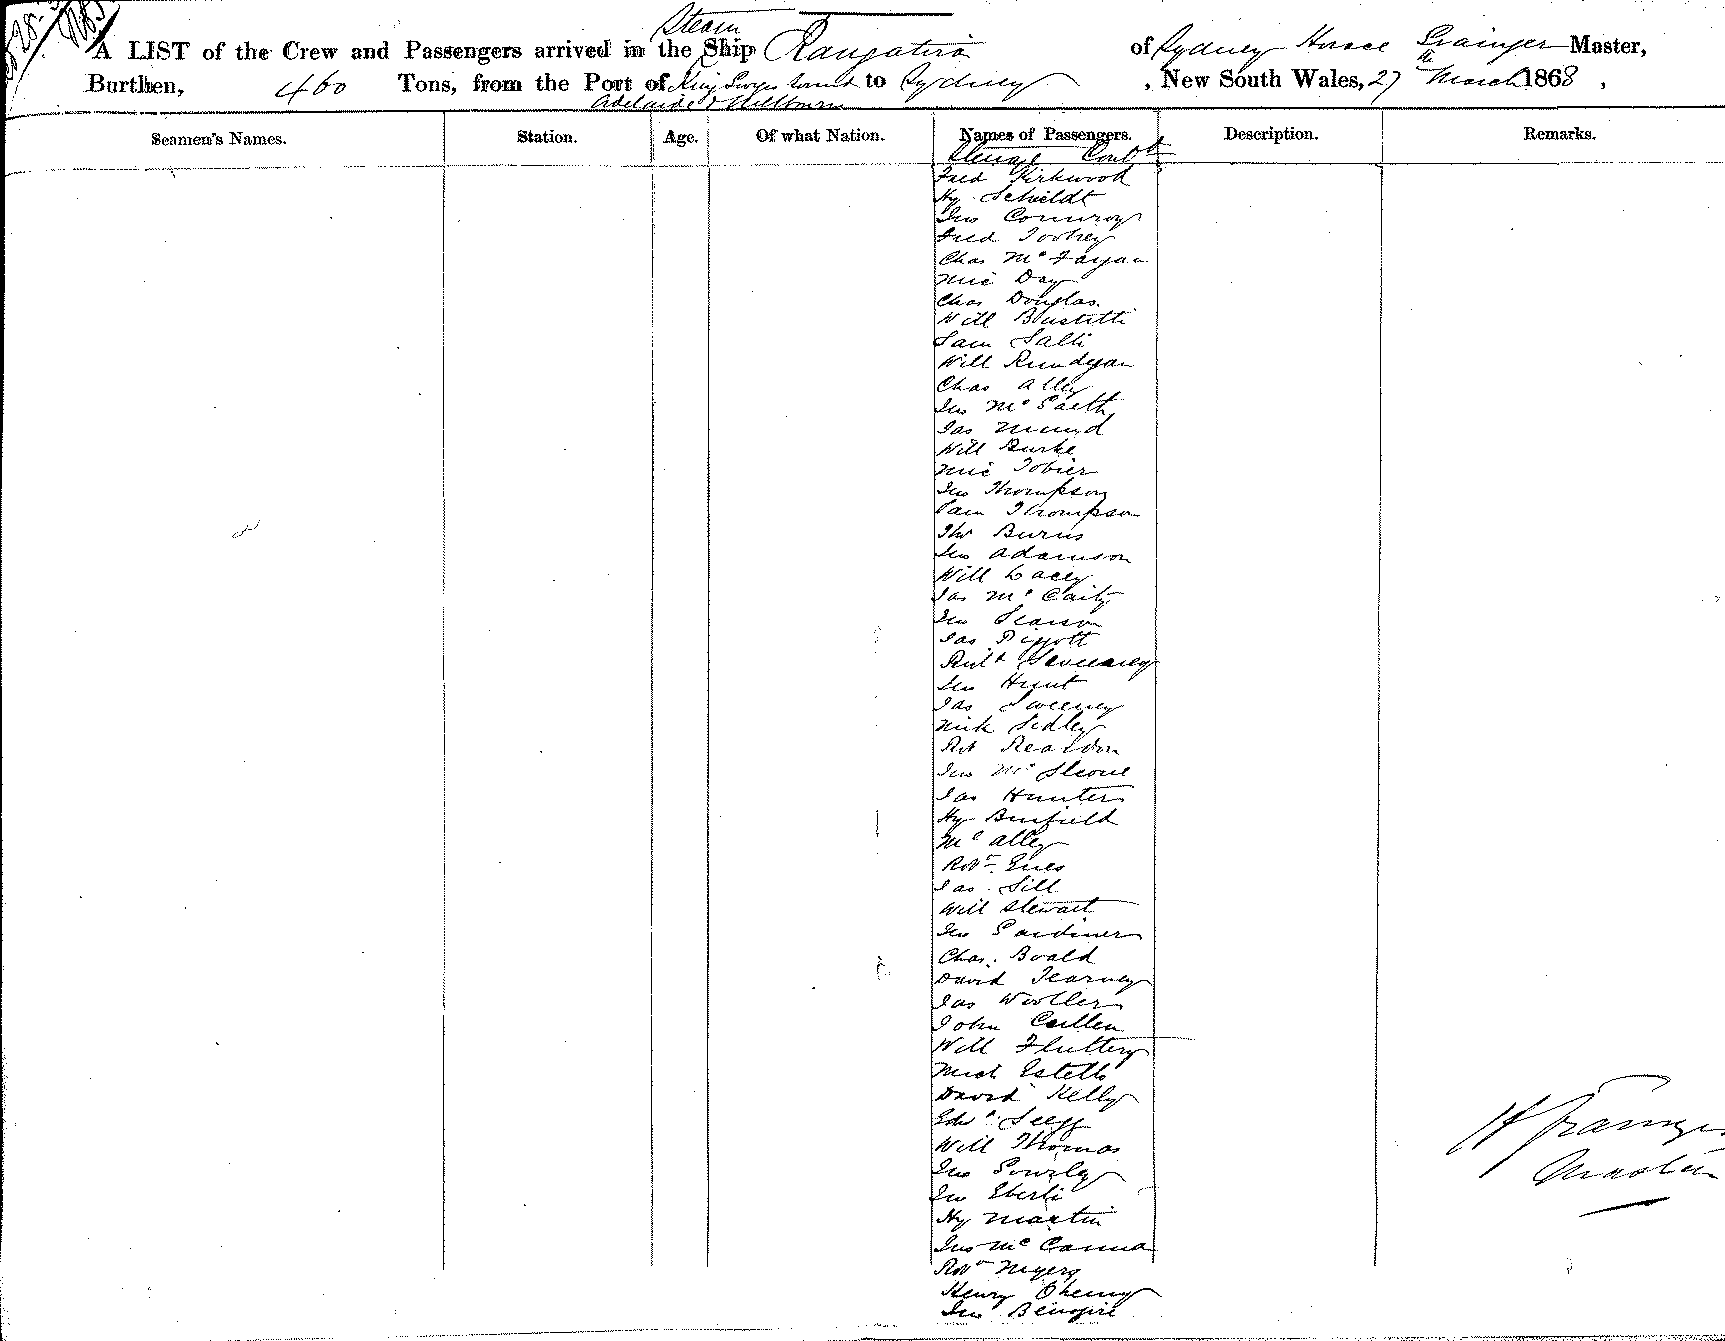 Steam
A LIST of the Crew and Passengers arrived in the Ship Rangatira of Sydney Horace Grainger Master,
Burthen, 460 Tons, from the Port of King Georges Sound to Sydney , New South Wales, 27th March 1868 ,
Adelaide & Melbourn
Seamen's Names. Station. Age. Of what Nation. Names of Passengers. Description. Remarks.
Steerage Cont
Fred Kirkwood
Hy Schieldt
Jno Conwroy
Fred Toohey
Chas Mc Fagan
Mic Day
Chas Douglas
Will Bustetti
Sam Salli
Will Rundgan
Chas Alley
Jno Mc
Jas
Will Burke
Mic Tobier
Jno Thompson
Sam Thompson
Tho Burns
Jno Adamson
Will Lacey
Jas Mc Caity
Jno Searson
Jas Pigott
Jno Hunt
Jas Sweeney
Nick Sedley
Rob Reardon
Jno Mc
Jas Hunter
Hy Binfield
Mc Alley
Robt
Jas Sill
Will Stewart
Jno Gardiner
Chas. Boald
David Tearney
Jas Woller
John Cullen
Will Fluttery
Mich Estello
David Kelly
Edwd
Will Thomas
Jno Gourley
Jno Eberli
Hy Martin
Jno Mc Canna
Robt Myers
Henry
Jno
H Grainger
Master